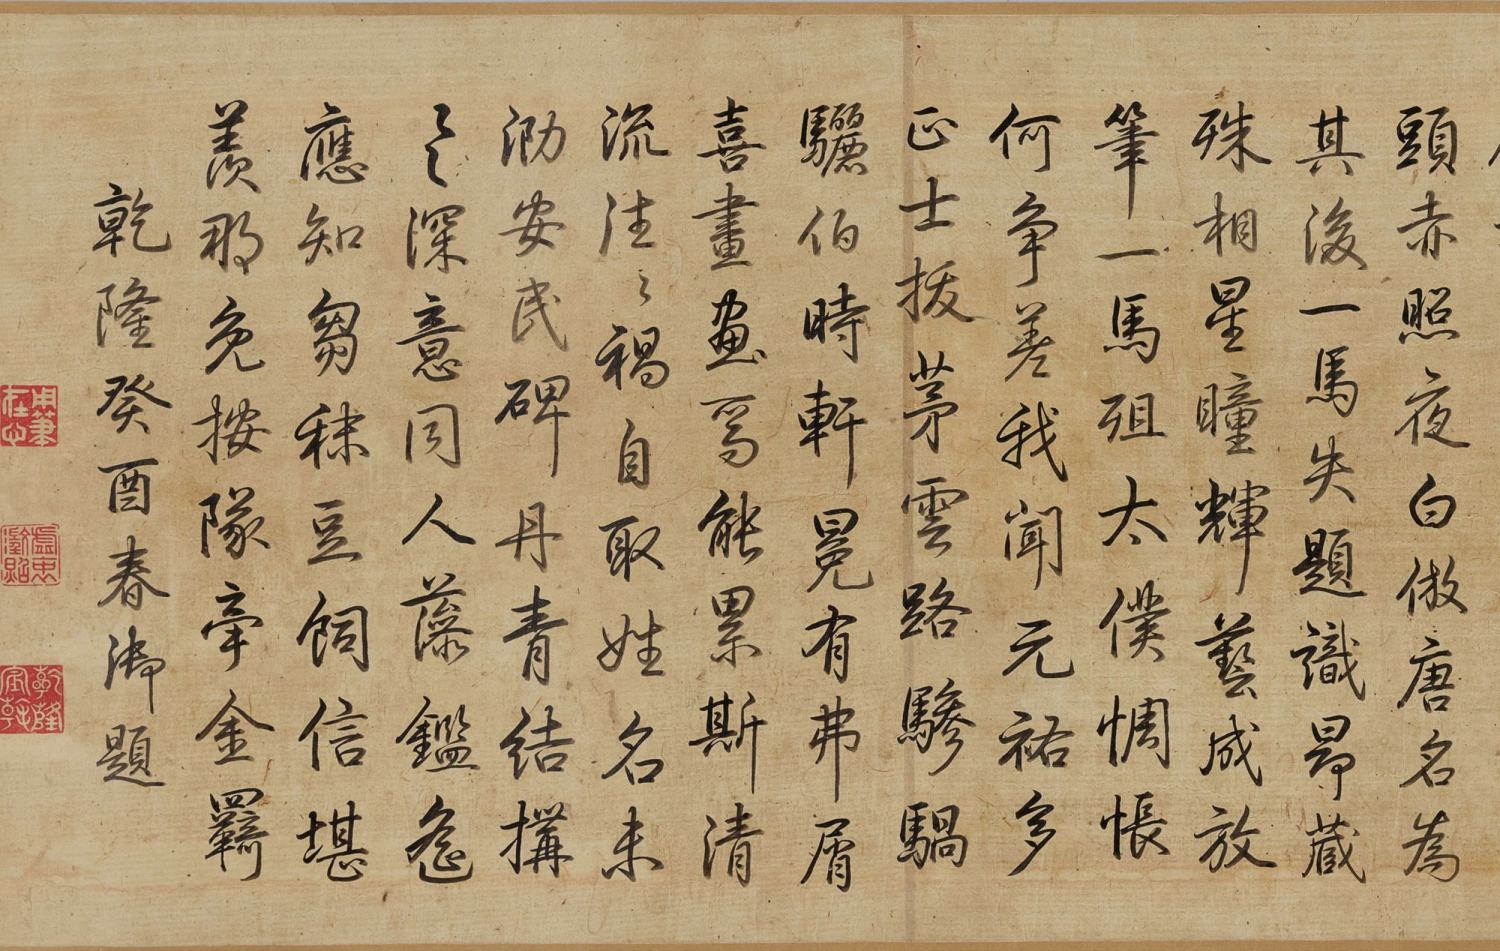 頭赤照夜白倣唐名為
其後一馬失題識昴藏
殊相星瞳輝藝成放
筆一馬殂太僕惆悵
何爭差我聞元祐多
正士拔茅雲路驂騧
驪伯時軒冕有弗屑
喜畫畫馬能累斯清
流注〻禍自取姓名未
泐安民碑丹青結搆
㠯深意同人藻鑑卮
應知芻秣豆飼信堪
羨那免按隊牽金羈
乾隆癸酉春御題
用筆在心
乾隆宸翰